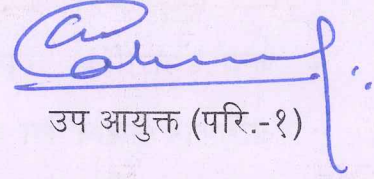 उप आयुक्त (परि.-१)